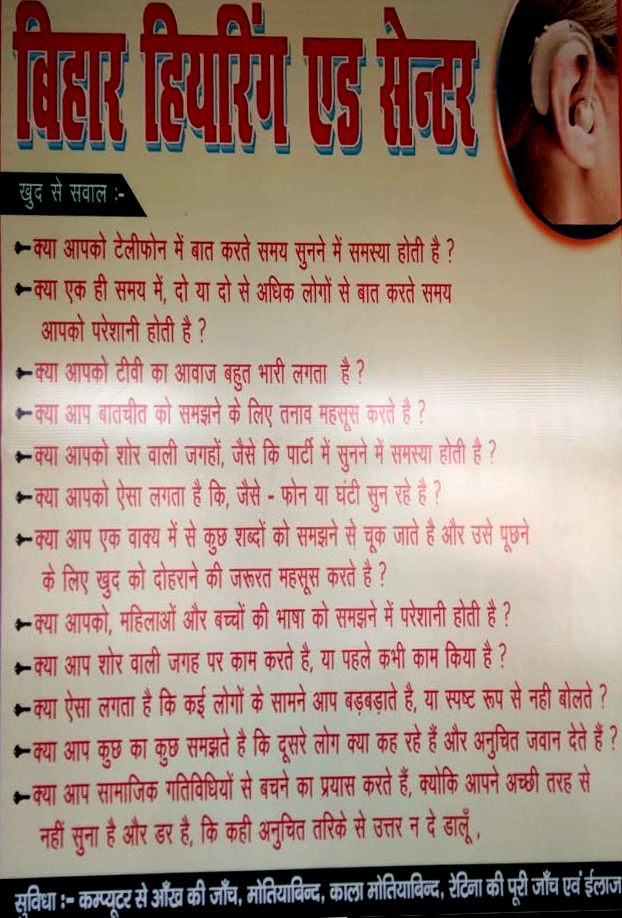 बिहार हियरिंग एड सेन्टर
खुद से सवाल :-
क्या आपको टेलीफोन में बात करते समय सुनने में समस्या होती है ?
क्या एक ही समय में, दो या दो से अधिक लोगों से बात करते समय
आपको परेशानी होती है ?
क्या आपको टीवी का आवाज बहुत भारी लगता है ?
क्या आप बातचीत को समझने के लिए तनाव महसूस करते है ?
क्या आपको शोर वाली जगहों, जैसे कि पार्टी में सुनने में समस्या होती है ?
क्या आपको ऐसा लगता है कि, जैसे - फोन या घंटी सुन रहे है ?
क्या आप एक वाक्य में से कुछ शब्दों को समझने से चूक जाते है और उसे पूछने
के लिए खुद को दोहराने की जरूरत महसूस करते है ?
क्या आपको, महिलाओं और बच्चों की भाषा को समझने में परेशानी होती है ?
क्या आप शोर वाली जगह पर काम करते है, या पहले कभी काम किया है ?
क्या ऐसा लगता है कि कई लोगों के सामने आप बड़बड़ाते है, या स्पष्ट रूप से नही बोलते ?
क्या आप कुछ का कुछ समझते है कि दूसरे लोग क्या कह रहे हैं और अनुचित जवान देते हैं ?
क्या आप सामाजिक गतिविधियों से बचने का प्रयास करते हैं, क्योकि आपने अच्छी तरह से
नहीं सुना है और डर है, कि कही अनुचित तरिके से उत्तर न दे डालूँ ,
सुविधा :- कम्प्यूटर से आँख की जाँच, मोतियाबिन्द, काला मोतियाबिन्द, रेटिना की पूरी जाँच एवं ईलाज